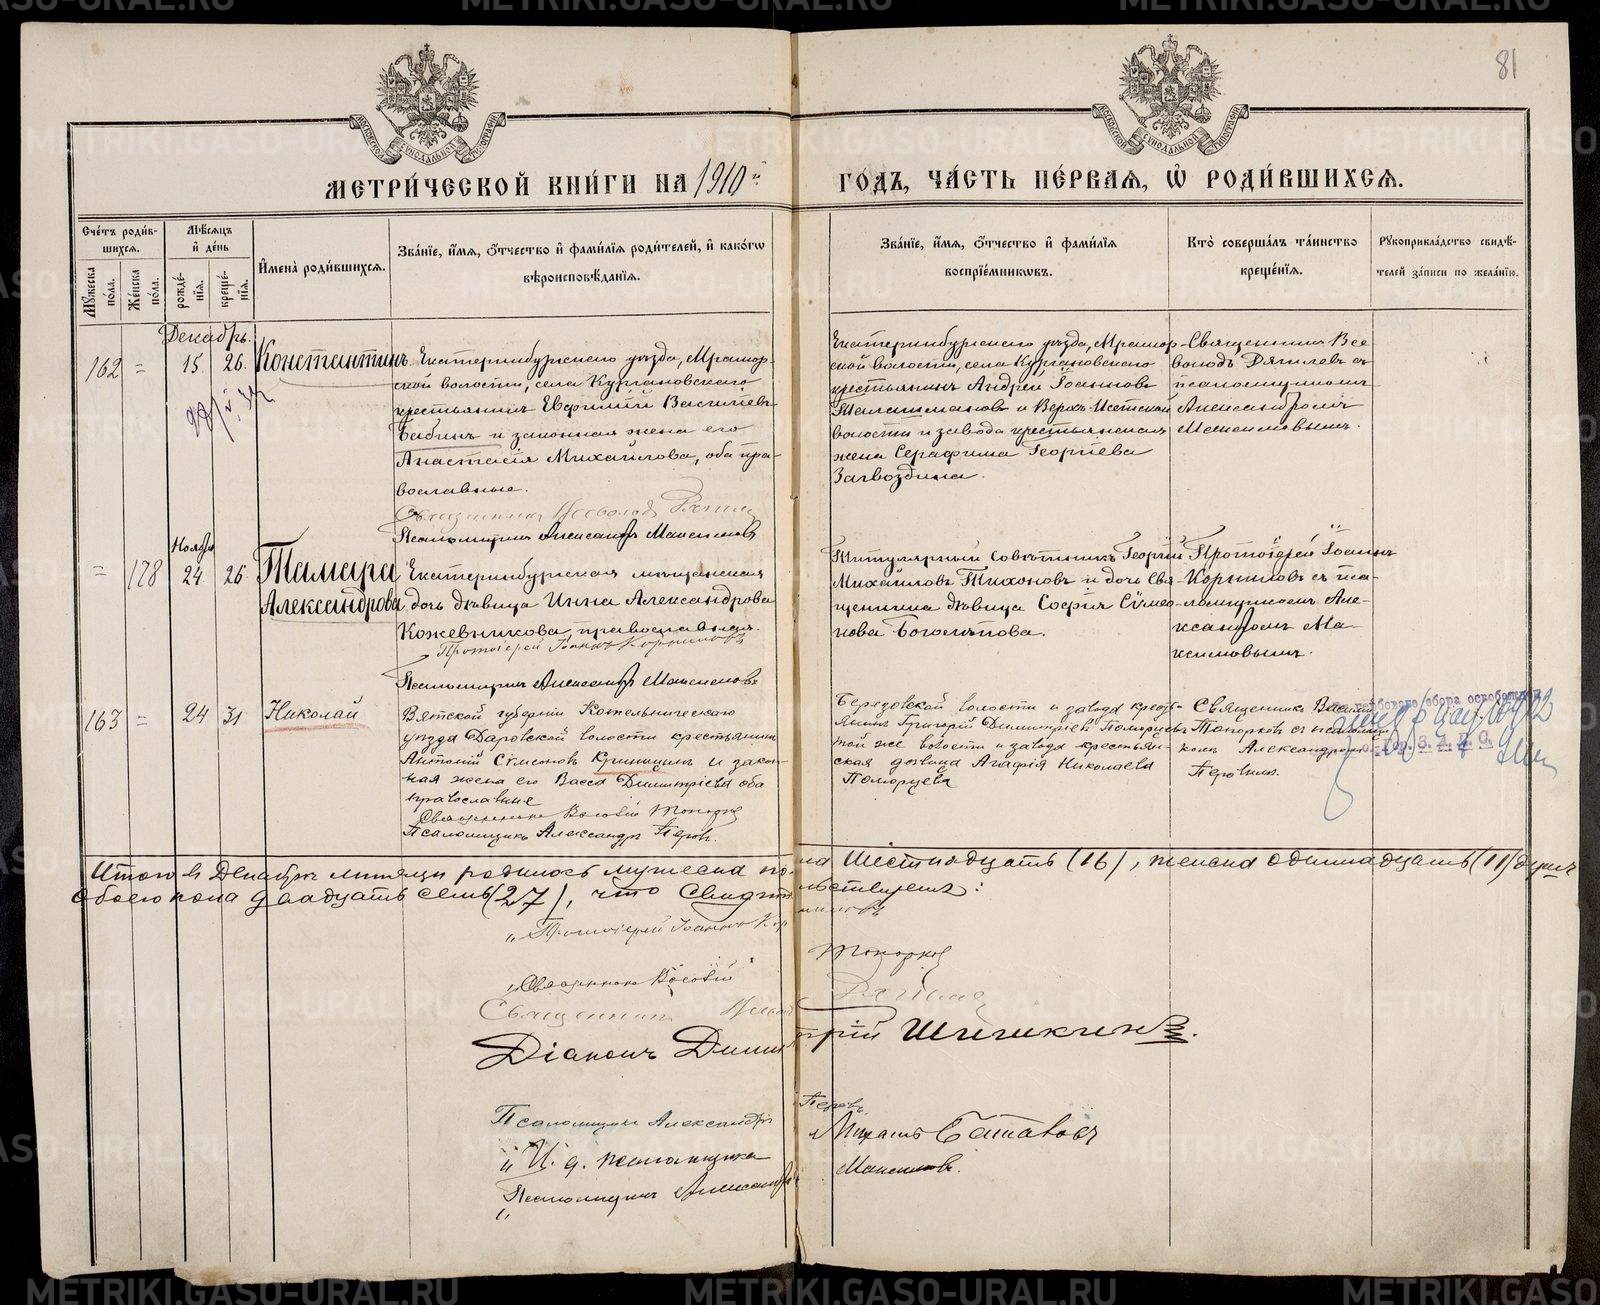 81
МЕТРИ́ЧЕСКОЙ КНИ́ГИ НА 1910й ГОДЪ, ЧА́СТЬ ПЕ́РВАѦ, Ѡ҆ РОДИ́ВШИХСѦ.
Сче́тъ роди́в-
шихсѧ.
Мѣ́сѧцъ
и҆ де́нь
И҆мена̀ роди́вшихсѧ.
Зва́нїе, и҆́мѧ, ѻ҆́тчество и҆ фами́лїѧ роди́телей, и҆ како́гѡ
вѣроисповѣ́данїѧ.
Зва́нїе, и҆́мѧ, ѻ҆́тчество и҆ фами́лїѧ
воспрїе́мникѡвъ.
Кто̀ соверша́лъ та́инство
креще́нїѧ.
Рꙋкоприкла́дство свидѣ́-
телей за́писи по жела́нїю.
Мꙋ́жеска
по́ла.
Же́нска
по́ла.
рожде́-
нїѧ.
креще́-
нїѧ.
Декабрь.
162 = 15 26 Константинъ
Екатеринбургскаго уѣзда, Мрамор-
ской волости, села Кургановскаго
крестьянинъ Евфимій Васильевъ
Бабинъ и законная жена его
Анастасія Михайлова, оба пра-
вославные.
Священникъ Всеволодъ
Псаломщикъ Александръ Максимовъ
Екатеринбургскаго уѣзда, Мрамор-
ской волости, села Кургановскаго
крестьянинъ Андрей Іоанновъ
и Верхъ-Исетской
волости и завода крестьянская
жена Серафима Георгіева
Загвоздина.
Священникъ Все-
володъ съ
псаломщикомъ
Александромъ
Максимовымъ.
Ноябрь
= 178 24 26 Тамара
Александрова
Екатеринбургская мѣщанская
дочь дѣвица Инна Александрова
Кожевникова, православная.
Протоіерей Іоаннъ Корниловъ
Псаломщикъ Александръ Максимовъ
Титулярный Совѣтникъ Георгій
Михайловъ Тихоновъ и дочь Свя-
щенника дѣвица Софія Сѵмео-
нова Боголѣпова.
Протоіерей Іоаннъ
Корниловъ съ пса-
ломщикомъ Але-
ксандромъ Ма-
ксимовымъ.
163 = 24 31 Николай
Вятской губерніи Котельническаго
уѣзда Даровской волости крестьянинъ
Антоній Сѵмеоновъ и закон-
ная жена его Васса Димитріева оба
православные
Священникъ Василій Топорковъ
Псаломщикъ Александръ Перовъ.
Березовской волости и завода кресть-
янинъ Григорій Димитріевъ Поморцевъ
той же волости и завода крестьян-
ская дѣвица Агафія Николаева
Поморцева
Священникъ Василій
Топорковъ съ псаломщи-
комъ Александромъ
Перовымъ.
Итого въ Декабрѣ мѣсяцѣ родилось мужеска пола шестнадцать (16), женска одиннадцать (11) душъ
обоего пола двадцать семь (27), что свидѣтельствуемъ:
Протоіерей Іоаннъ Корниловъ
Священникъ Василій Топорковъ
Священникъ
Діаконъ Димитрій Шишкинъ.
Псаломщикъ Александръ Перовъ
И. д. псаломщика Михаилъ
Псаломщикъ Александръ Максимовъ.
METRIKI.GASO-URAL.RU